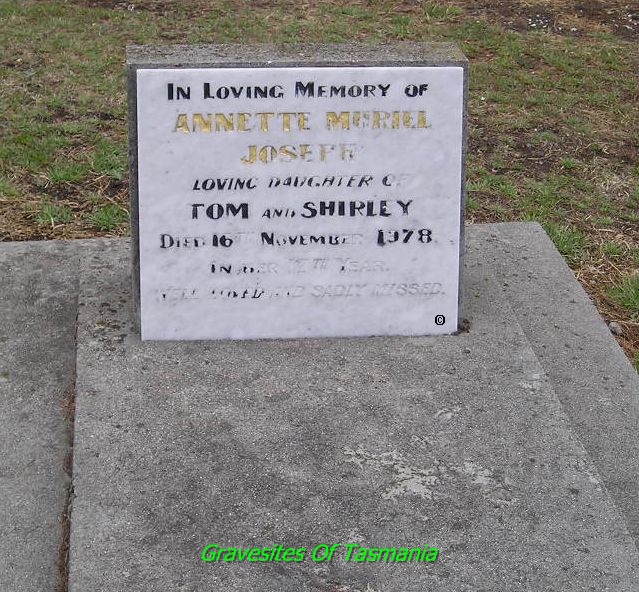 In Loving Memory of
ANNETTE MURIEL
JOSEPH
LOVING DAUGHTER OF
TOM AND SHIRLEY
Died 16TH November 1978.
In her Year.
WELL LOVED AND SADLY MISSED.
©
Gravesites Of Tasmania